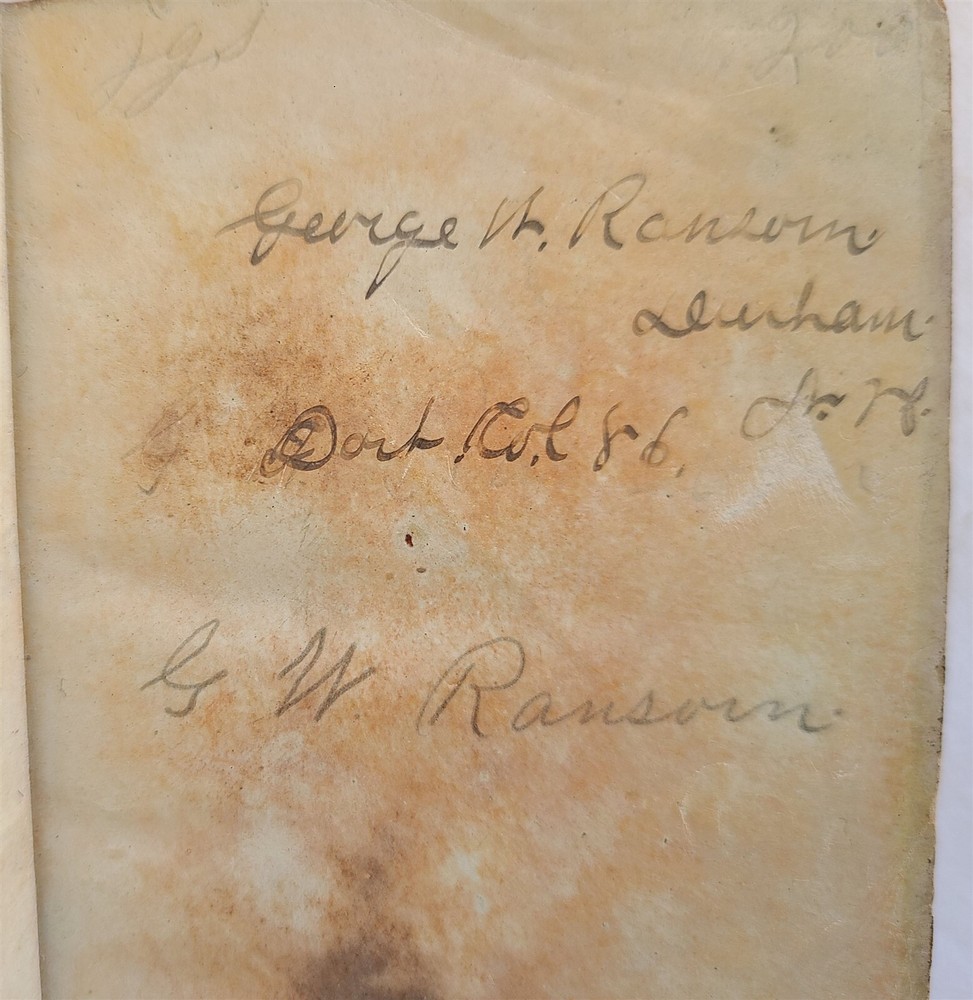 George W. Ransom.
Durham.
N. H.
Dart. Col 86.
G W Ransom.